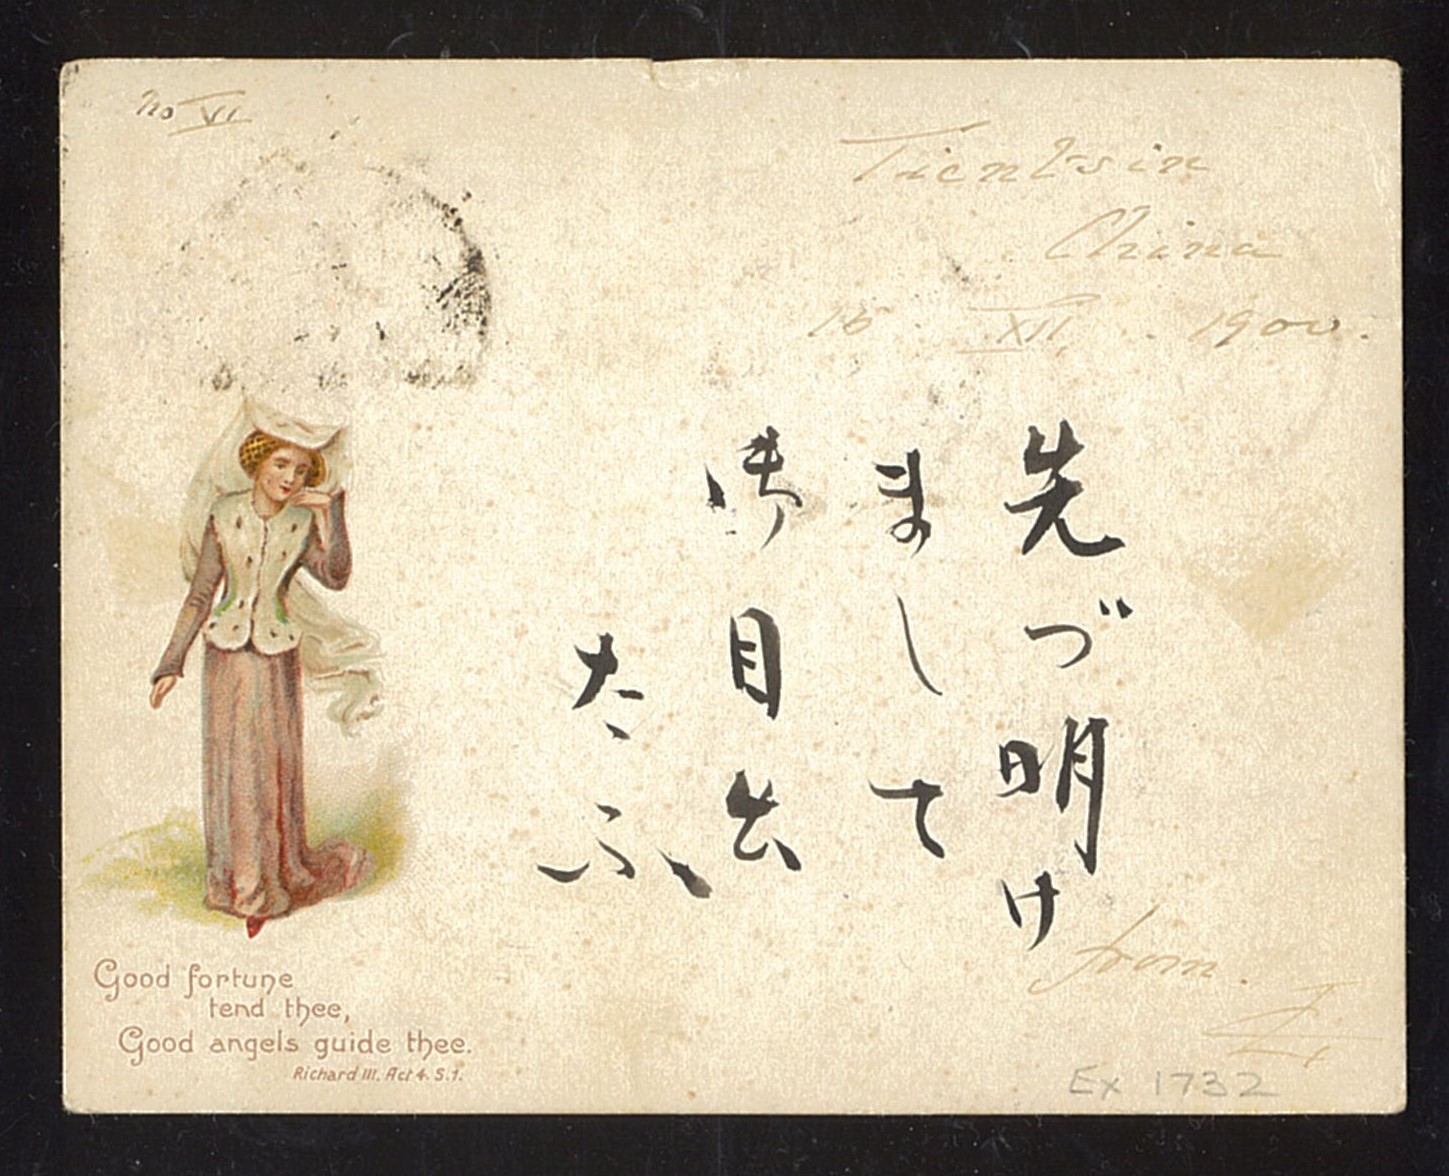 No VI
Tientsin
China
16 . XII . 1900.
先づ明け
まして
御目出
たふ
from.
Good fortune
tend thee,
Good angels guide thee.
Richard III. Act 4. S.1.
Ex 1732